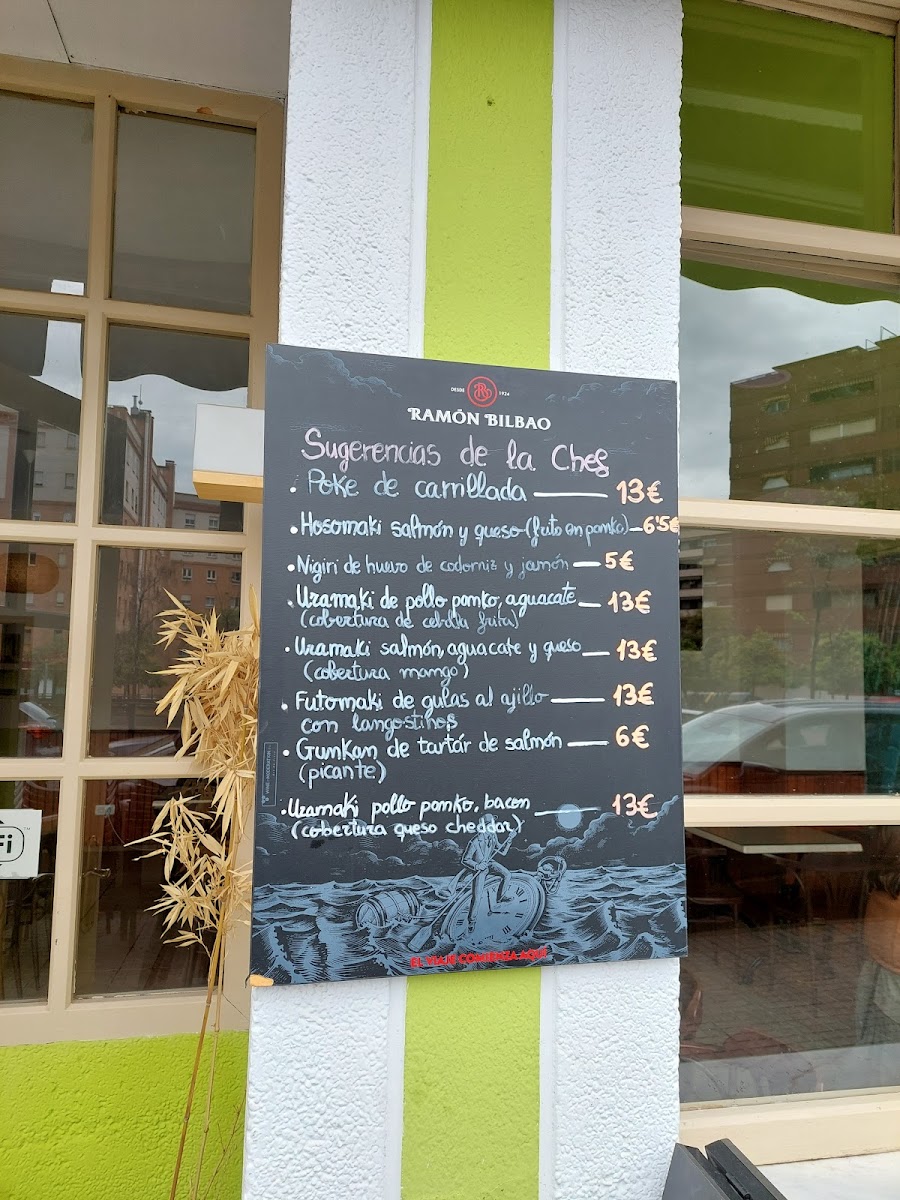 DESDE 1924
RAMÓN BILBAO
Sugerencias de la Chef
• Poke de carrillada — 13€
• Hosomaki salmón y queso (frito en panko) — 6'5€
• Nigiri de huevo de codorniz y jamón — 5€
• Uramaki de pollo panko, aguacate — 13€
(cobertura de cebolla frita)
• Uramaki salmón, aguacate y queso — 13€
(cobertura mango)
• Futomaki de gulas al ajillo — 13€
con langostinos
• Gunkan de tartár de salmón — 6€
(picante)
• Uramaki pollo panko, bacon — 13€
(cobertura queso cheddar)
EL VIAJE COMIENZA AQUÍ
Fi